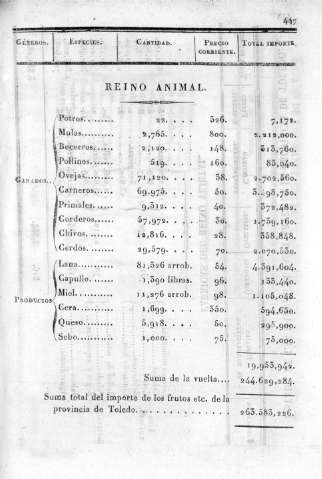 GÉNEROS. ESPECIES. CANTIDAD. PRECIO CORRIENTE. TOTAL IMPORTE.
REINO ANIMAL.
Potros......... 22. . . . 326. 7,172.
Mulas......... 2,765. . . . 800. 2,212,000.
Becerros...... 2,120. . . . 148. 313,760.
Pollinos....... 519. . . . 160. 83,040.
GANADOS.. Ovejas........ 71,120. . . . 38. 2,702,560.
Carneros...... 69,975. . . . 50. 3,498,750.
Primales...... 9,312. . . . 40. 372,482.
Corderos...... 57,972. . . . 30. 1,739,160.
Chivos........ 12,816. . . . 28. 358,848.
Cerdos........ 29,579. . . . 70. 2,070,530.
Lana.......... 81,326 arrob. 54. 4,391,604.
Capullo....... 1,390 libras. 96. 133,440.
PRODUCTOS Miel.......... 11,276 arrob. 98. 1,105,048.
Cera.......... 1,699. . . . 350. 594,650.
Queso......... 5,918. . . . 50. 295,900.
Sebo.......... 1,000. . . . 75. 75,000.
19,953,942.
Suma de la vuelta.... 244.629,284.
Suma total del importe de los frutos etc. de la
provincia de Toledo. . . . . . . . . . . . . 263.583,226.